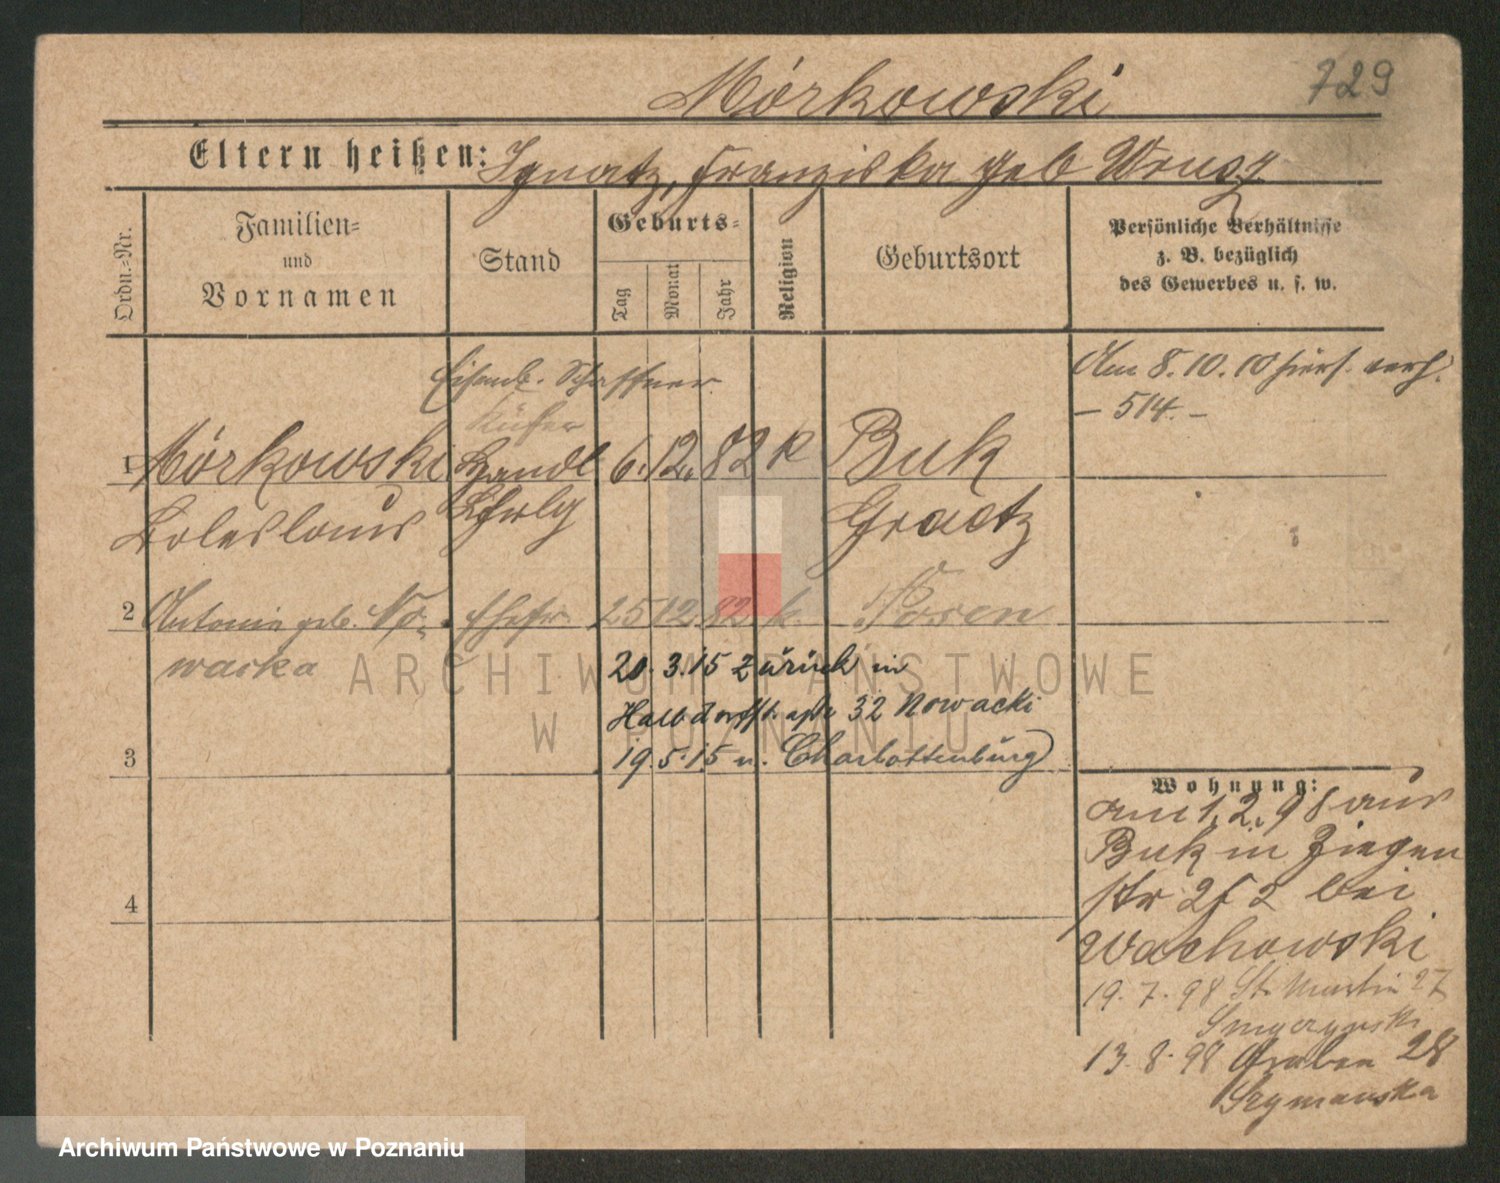 Mórkowski 729
Eltern heißen: Ignatz, Franziska geb Wrusz
Ordn.-Nr.
Familien-
und
Vornamen
Stand
Geburts-
Tag
Monat
Jahr
Religion
Geburtsort
Persönliche Verhältnisse
z. B. bezüglich
des Gewerbes u. s. w.
Eisenb. Schaffner
Am 8.10.10 hiers. verh.
- 514. -
Küfer
1 Mórkowski Handl 6. 12. 82 K Buk
Boleslaus Lhrlg Graetz
2 Antonie geb. No- Ehefr. 25 12 82 k. Posen
wacka
20. 3. 15 zurück in
32 Nowacki
3 19. 5. 15 n. Charlottenburg
Wohnung:
am 1. 2. 98 aus
Buk in Ziegen
str 2 bei
Wachowski
19. 7. 98 St. Martin 27
13. 8. 98 Graben 28
Szymanska
4
ARCHIWUM PAŃSTWOWE
W POZNANIU
Archiwum Państwowe w Poznaniu